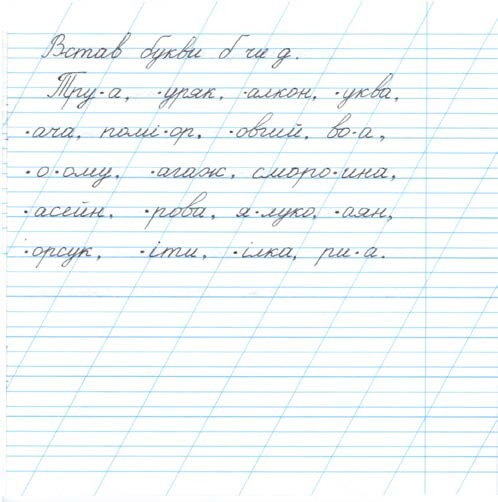 Встав букви б чи д.
Тру·а, ·уряк, ·алкон, ·уква,
·ача, помі·ор, ·овгий, во·а,
·о·ому, ·агаж, сморо·ина,
·асейн, ·рова, я·луко, ·аян,
·орсук, ·іти, ·ілка, ри·а.